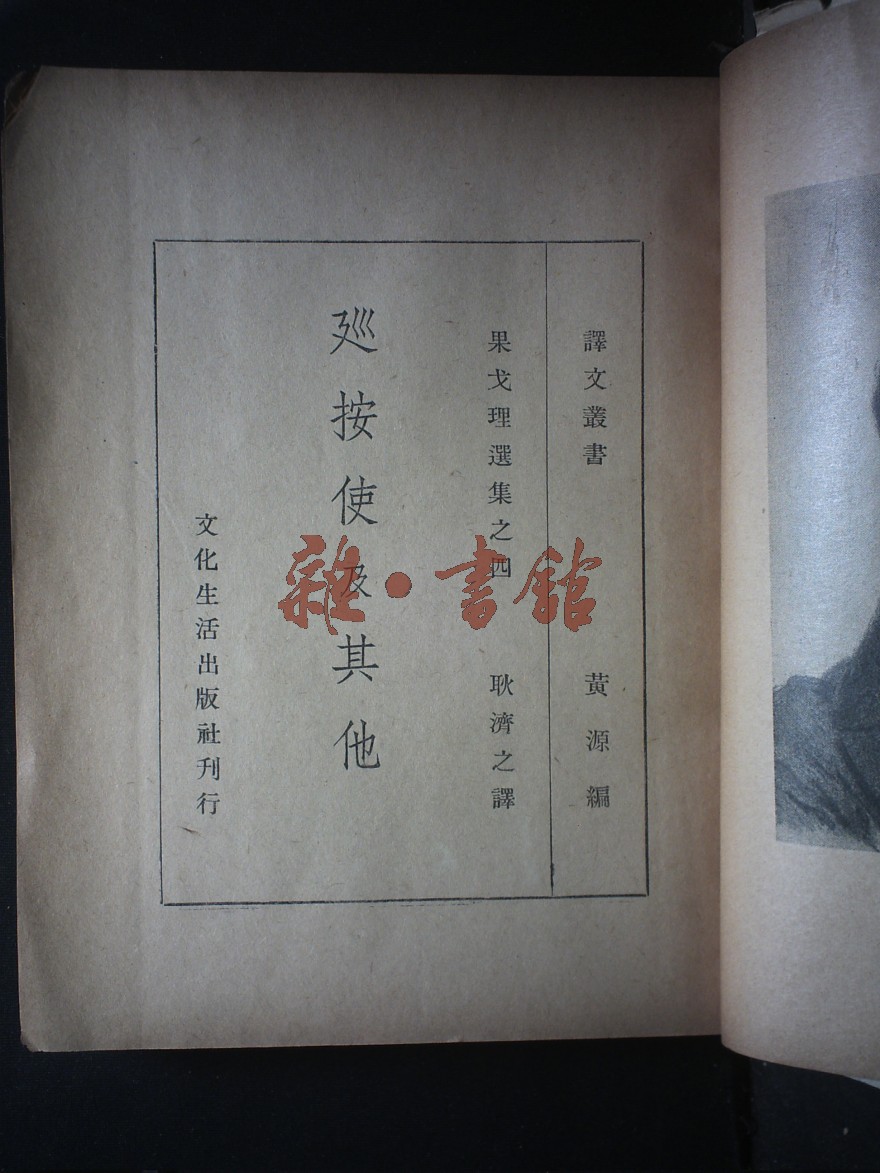 譯文叢書
黃源編
果戈理選集之四
耿濟之譯
廵按使及其他
文化生活出版社刊行
雜·書館